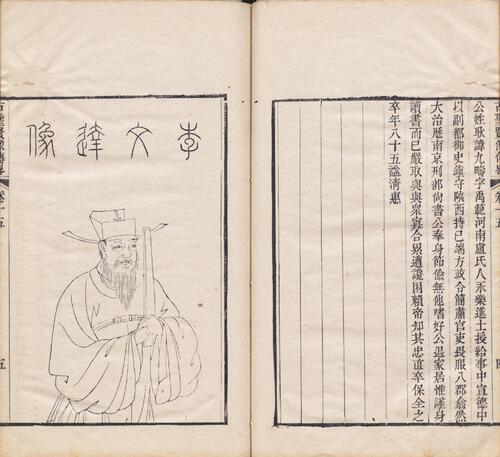 公姓耿諱九疇字禹範河南盧氏人永樂進士授給事中宣德中
以副都御史鎮守陝西持己端方政令簡肅官吏畏服八郡翕然
大治歷南京刑部尚書公奉身節儉無他嗜好公退家居惟謹身
讀書而已嚴取與與衆寡合累遭讒困賴帝知其忠直卒保全之
卒年八十五諡清惠
李文達像
卷十五
五